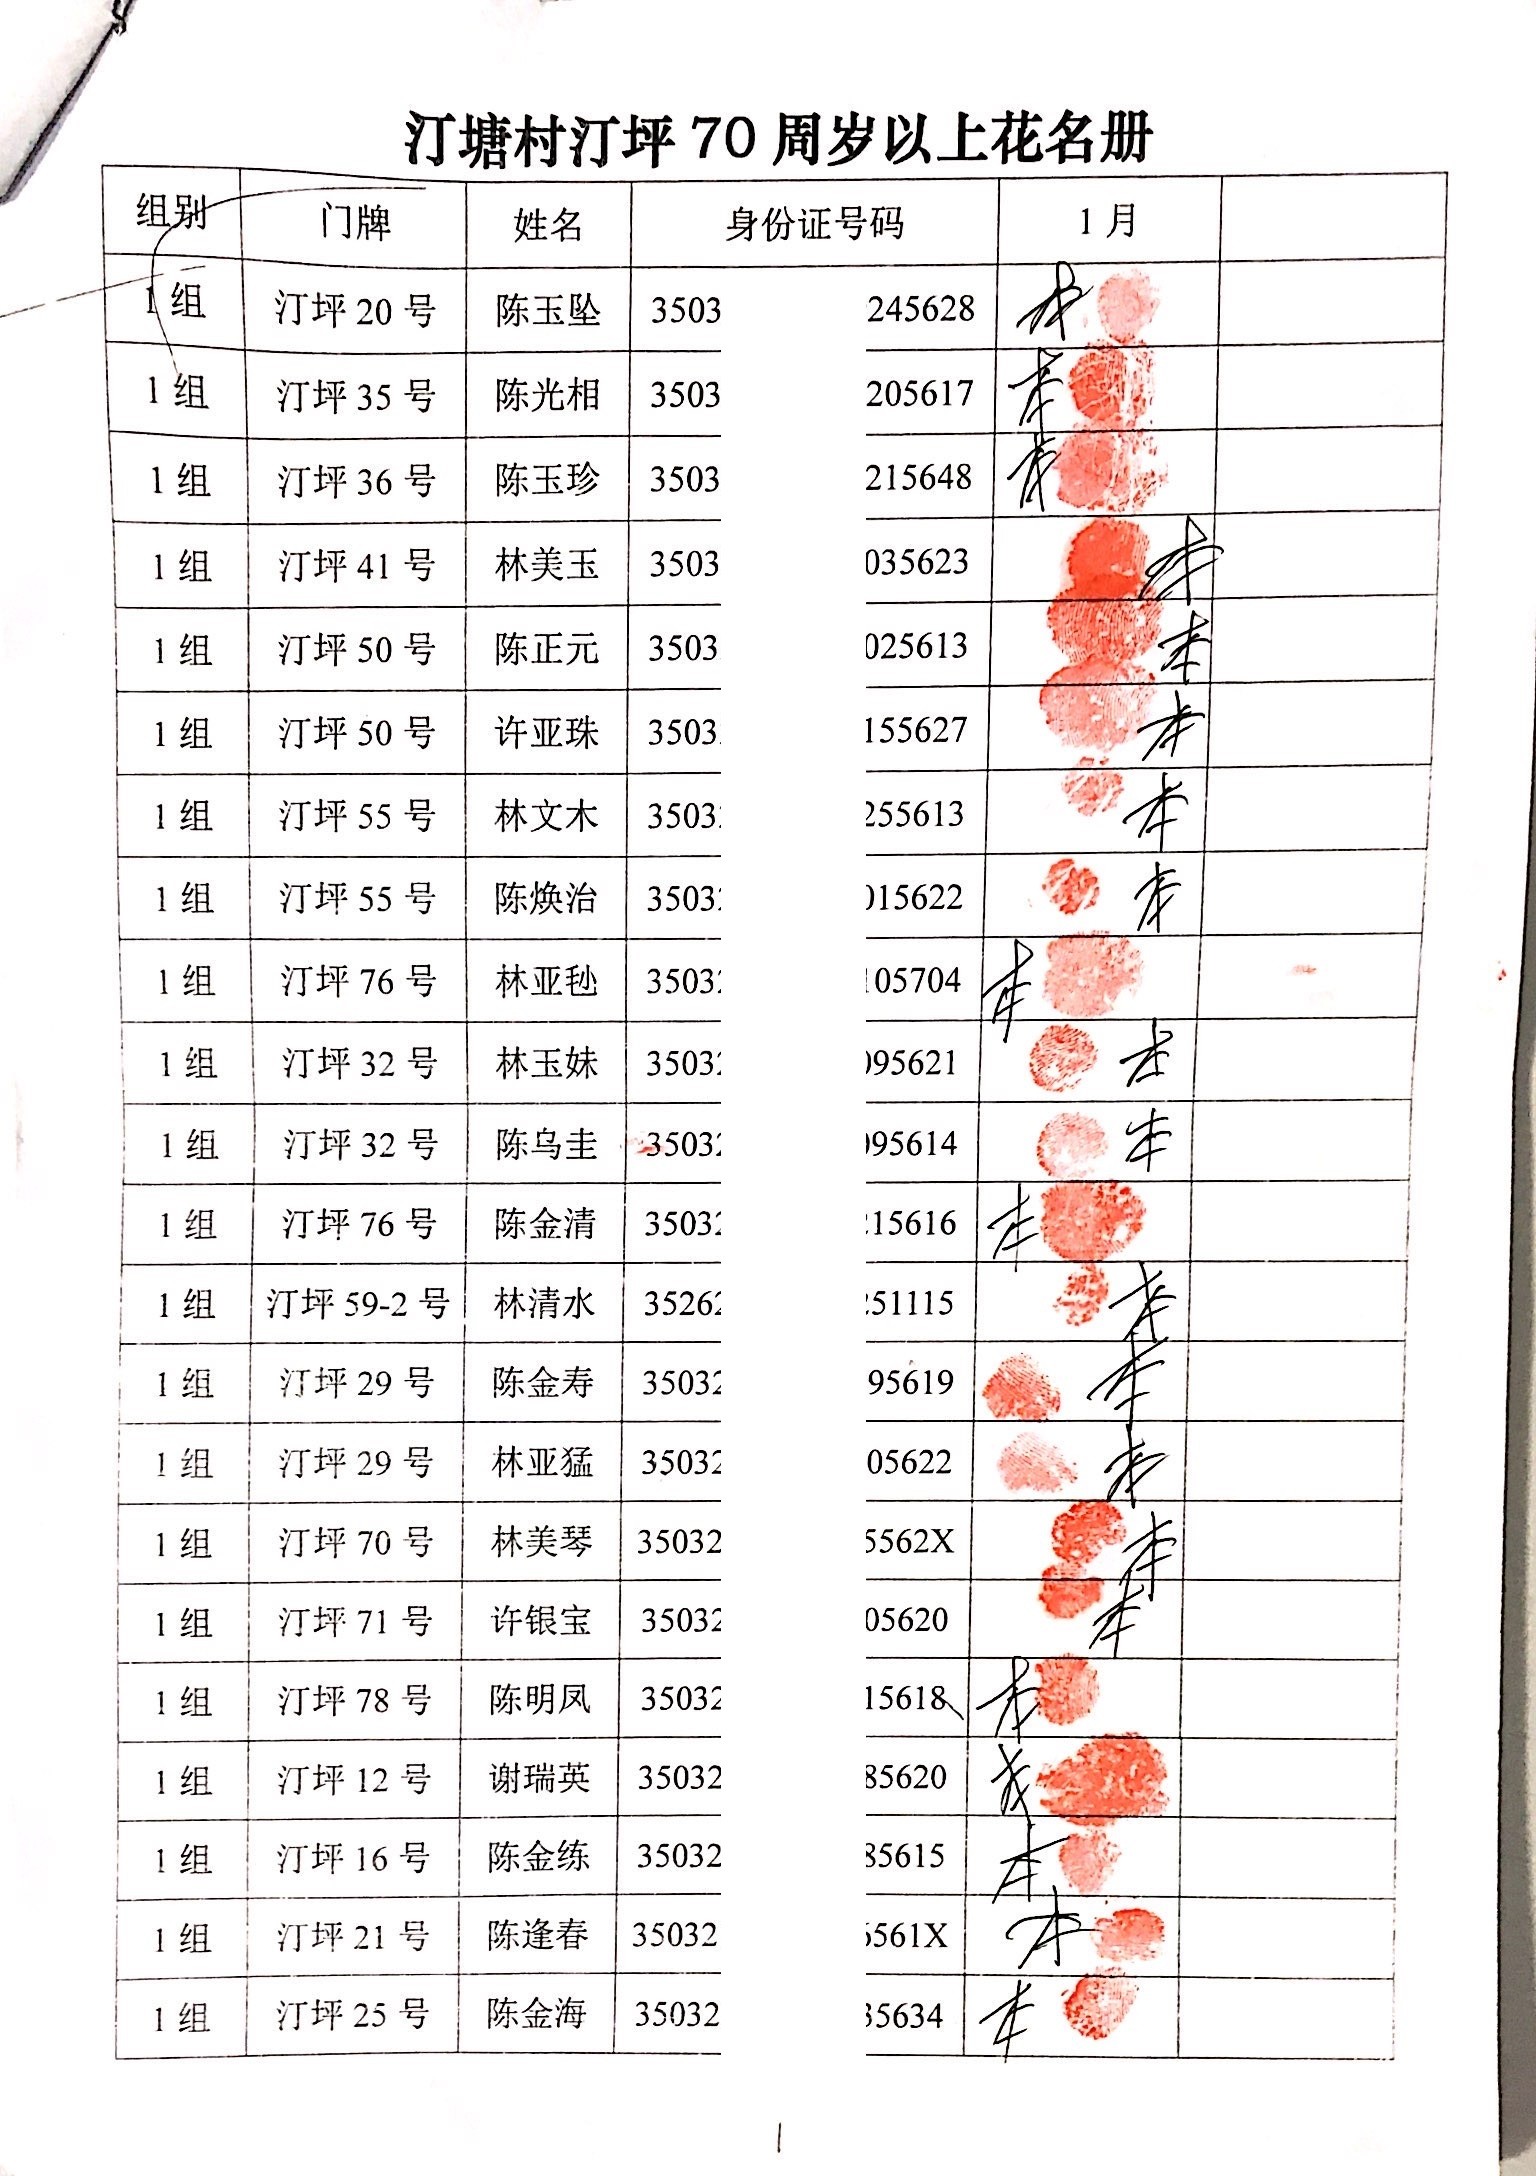 汀塘村汀坪70周岁以上花名册
组别 门牌 姓名 身份证号码 1月
1组 汀坪20号 陈玉坠 3503 245628 本
1组 汀坪35号 陈光相 3503 205617 本
1组 汀坪36号 陈玉珍 3503 215648 本
1组 汀坪41号 林美玉 3503 035623 本
1组 汀坪50号 陈正元 3503 025613 本
1组 汀坪50号 许亚珠 3503 155627 本
1组 汀坪55号 林文木 3503 255613 本
1组 汀坪55号 陈焕治 3503 015622 本
1组 汀坪76号 林亚 3503 105704 本
1组 汀坪32号 林玉妹 3503 095621 本
1组 汀坪32号 陈乌圭 3503 095614 本
1组 汀坪76号 陈金清 35032 215616 本
1组 汀坪59-2号 林清水 35262 251115 本
1组 汀坪29号 陈金寿 35032 95619 本
1组 汀坪29号 林亚猛 35032 05622 本
1组 汀坪70号 林美琴 35032 5562X 本
1组 汀坪71号 许银宝 35032 05620 本
1组 汀坪78号 陈明凤 35032 15618 本
1组 汀坪12号 谢瑞英 35032 85620 本
1组 汀坪16号 陈金练 35032 85615 本
1组 汀坪21号 陈逢春 35032 561X 本
1组 汀坪25号 陈金海 35032 35634 本
1